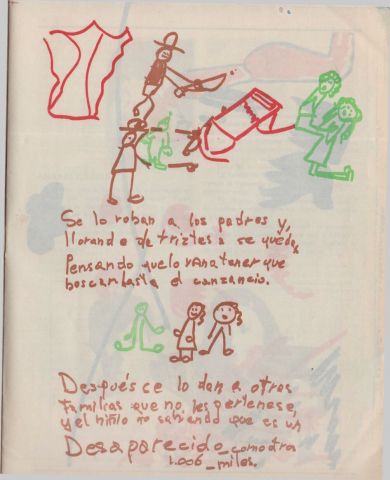 Se lo roban a los padres y,
llorando de tristesa se quedan
Pensando que lo van a tener que
boscar hasta el canzancio.
Después ce lo dan a otras
familias que no les pertenese,
y el niñio no sabiendo que es un
Desaparecido_como otro
1.006_miles.